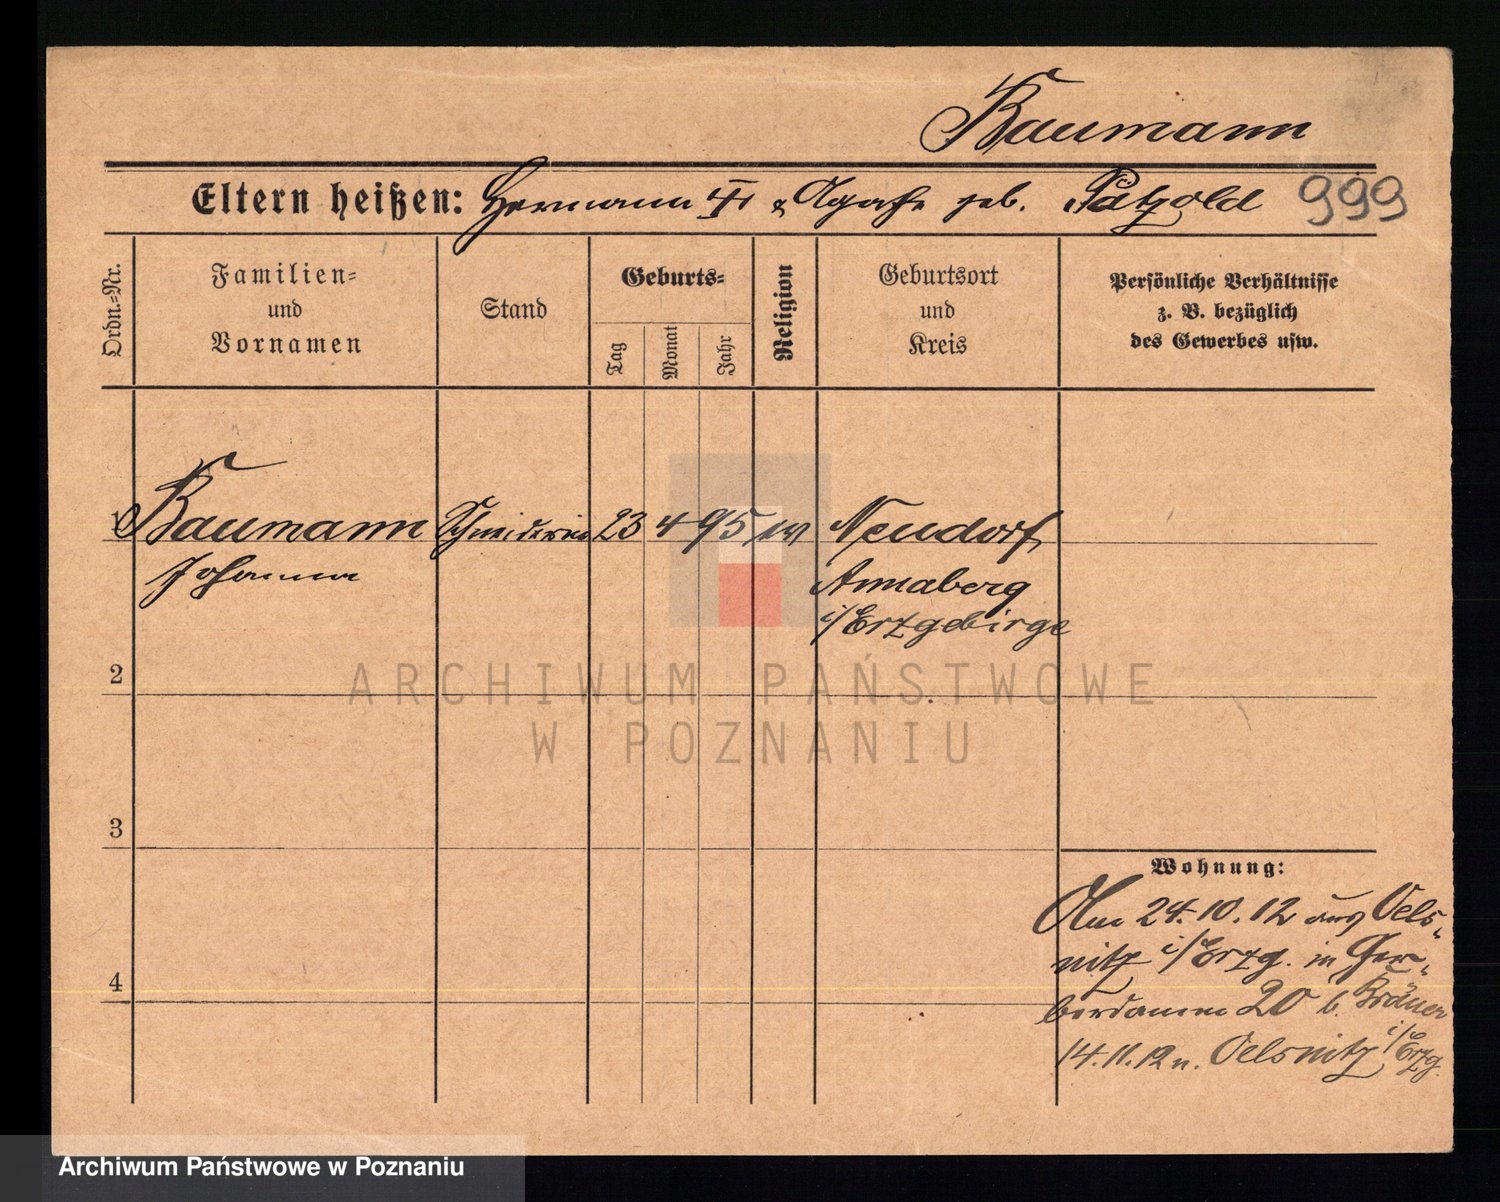 Baumann
Eltern heißen: Hermann & Agathe geb. Pätzold 999
Ordn.=Nr.
Familien=
und
Vornamen
Stand
Geburts=
Tag
Monat
Jahr
Religion
Geburtsort
und
Kreis
Persönliche Verhältnisse
z. B. bezüglich
des Gewerbes usw.
1 Baumann Schneiderin 23 4 95 Neudorf
Johanna Annaberg
i/Erzgebirge
2
3
4
ARCHIWUM PAŃSTWOWE
W POZNANIU
Wohnung:
Am 24.10.12 aus Oels-
nitz i/Erzg. in Ger-
berdamm 20 b.
14.11.12 n. Oelsnitz i/Erzg.
Archiwum Państwowe w Poznaniu